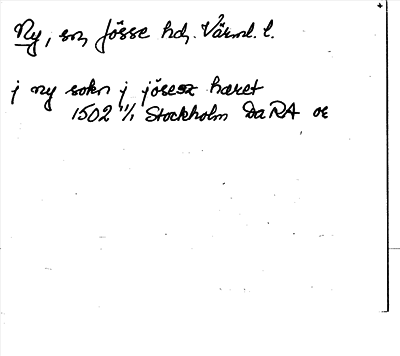 Ny, sn, Jösse hd, Värml. l.
j ny sokn j jösesz haret
1502 11/1 Stockholm DaRA or